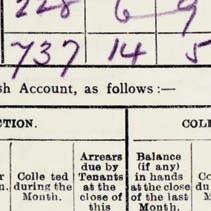 228 6 9
737 14 5
sh Account, as follows :—
CTION. COL
r Colle ted during the Month. Arrears due by Tenants at the close of this Balance (if any) in hands at the close of the last Month. Co du M